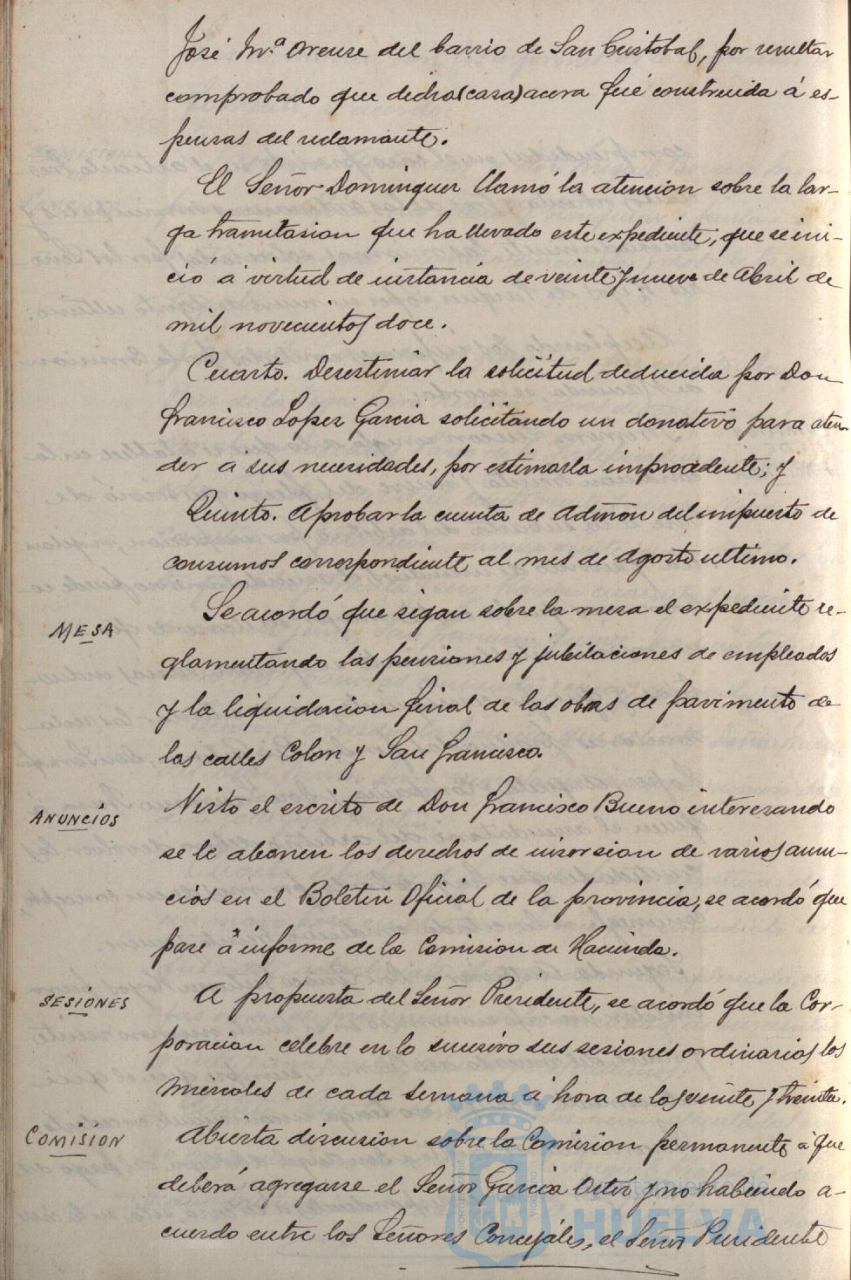 José Mª Orense del barrio de San Cristobal, por resultar
comprobado que dicha (casa) acera fué construida á es-
pensas del reclamante.
El Señor Dominguez llamó la atencion sobre la lar-
ga tramitasion que ha llevado este expediente, que se ini-
ció á virtud de instancia de veinte y nueve de Abril de
mil novecientos doce.
Cuarto. Desestimar la solicitud deducida por Don
Francisco Lopez Garcia solicitando un donativo para aten-
der á sus necesidades, por estimarla improcedente; y
Quinto. Aprobar la cuenta de Admon del impuesto de
consumos correspondiente al mes de Agosto ultimo.
MESA
Se acordó que sigan sobre la mesa el expediente re-
glamentando las pensiones y jubilaciones de empleados
y la liquidacion final de las obras de pavimento de
las calles Colon y San Francisco.
ANUNCIOS
Visto el escrito de Don Francisco Bueno interesando
se le abonen los derechos de insersion de varios anun-
cios en el Boletin Oficial de la provincia, se acordó que
pase á informe de la Comision de Hacienda.
SESIONES
A propuesta del Señor Presidente, se acordó que la Cor-
poracion celebre en lo sucesivo sus sesiones ordinarias los
miércoles de cada semana á hora de las veinte y treinta.
COMISION
Abierta discusion sobre la Comision permanente á que
deberá agregarse el Señor Garcia y no habiendo a-
cuerdo entre los Señores Concejales, el Señor Presidente
HUELVA